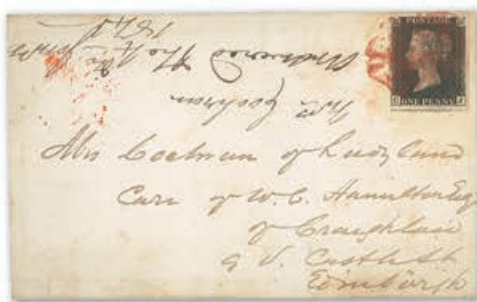 POSTAGE
ONE PENNY
C J
Answered The
Mrs Cochran
Mrs Cochran of Ladyland
Care of W. C. Hamilton Esq
of Craighlaw
9 V. Castle St
Edinburgh